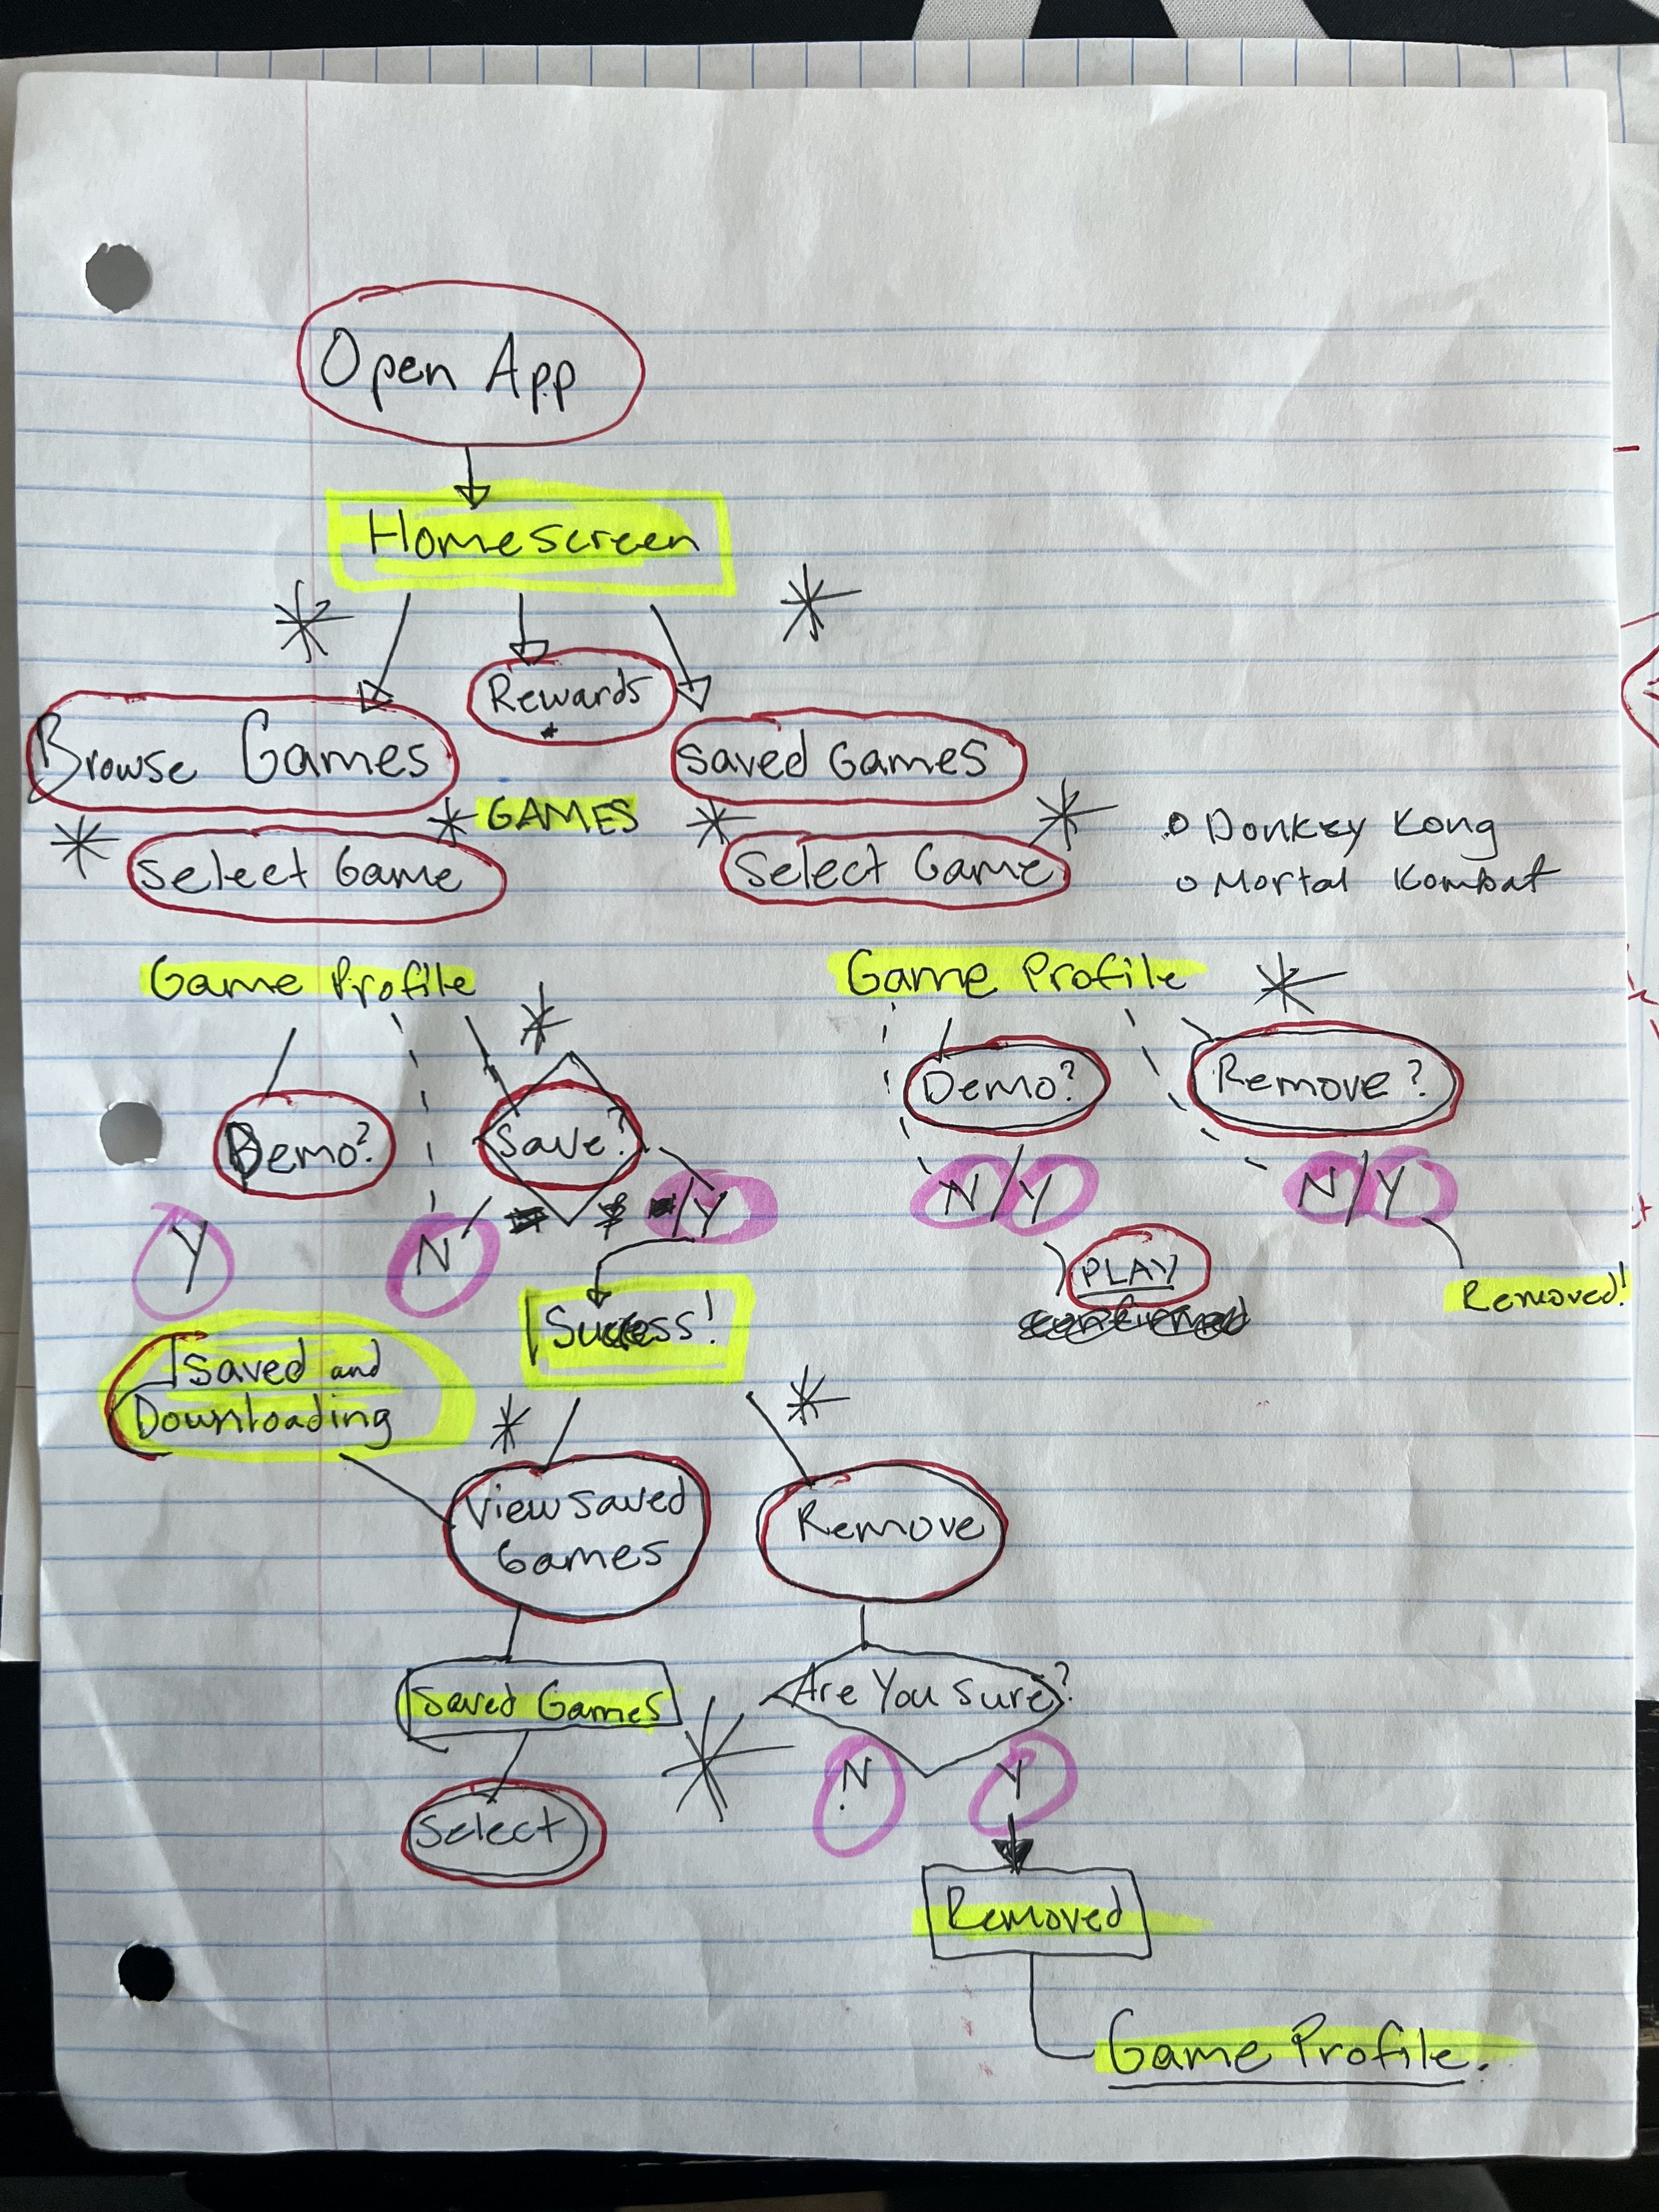 Open App
Homescreen
Rewards
Browse Games
Saved Games
GAMES
Select Game
Select Game
o Donkey Kong
o Mortal Kombat
Game Profile
Game Profile
Demo?
Save?
Demo?
Remove?
Y
N
/Y
N/Y
N/Y
PLAY
Removed!
Success!
Saved and
Downloading
View Saved
Games
Remove
Saved Games
Are You Sure?
N
Y
Select
Removed
Game Profile.